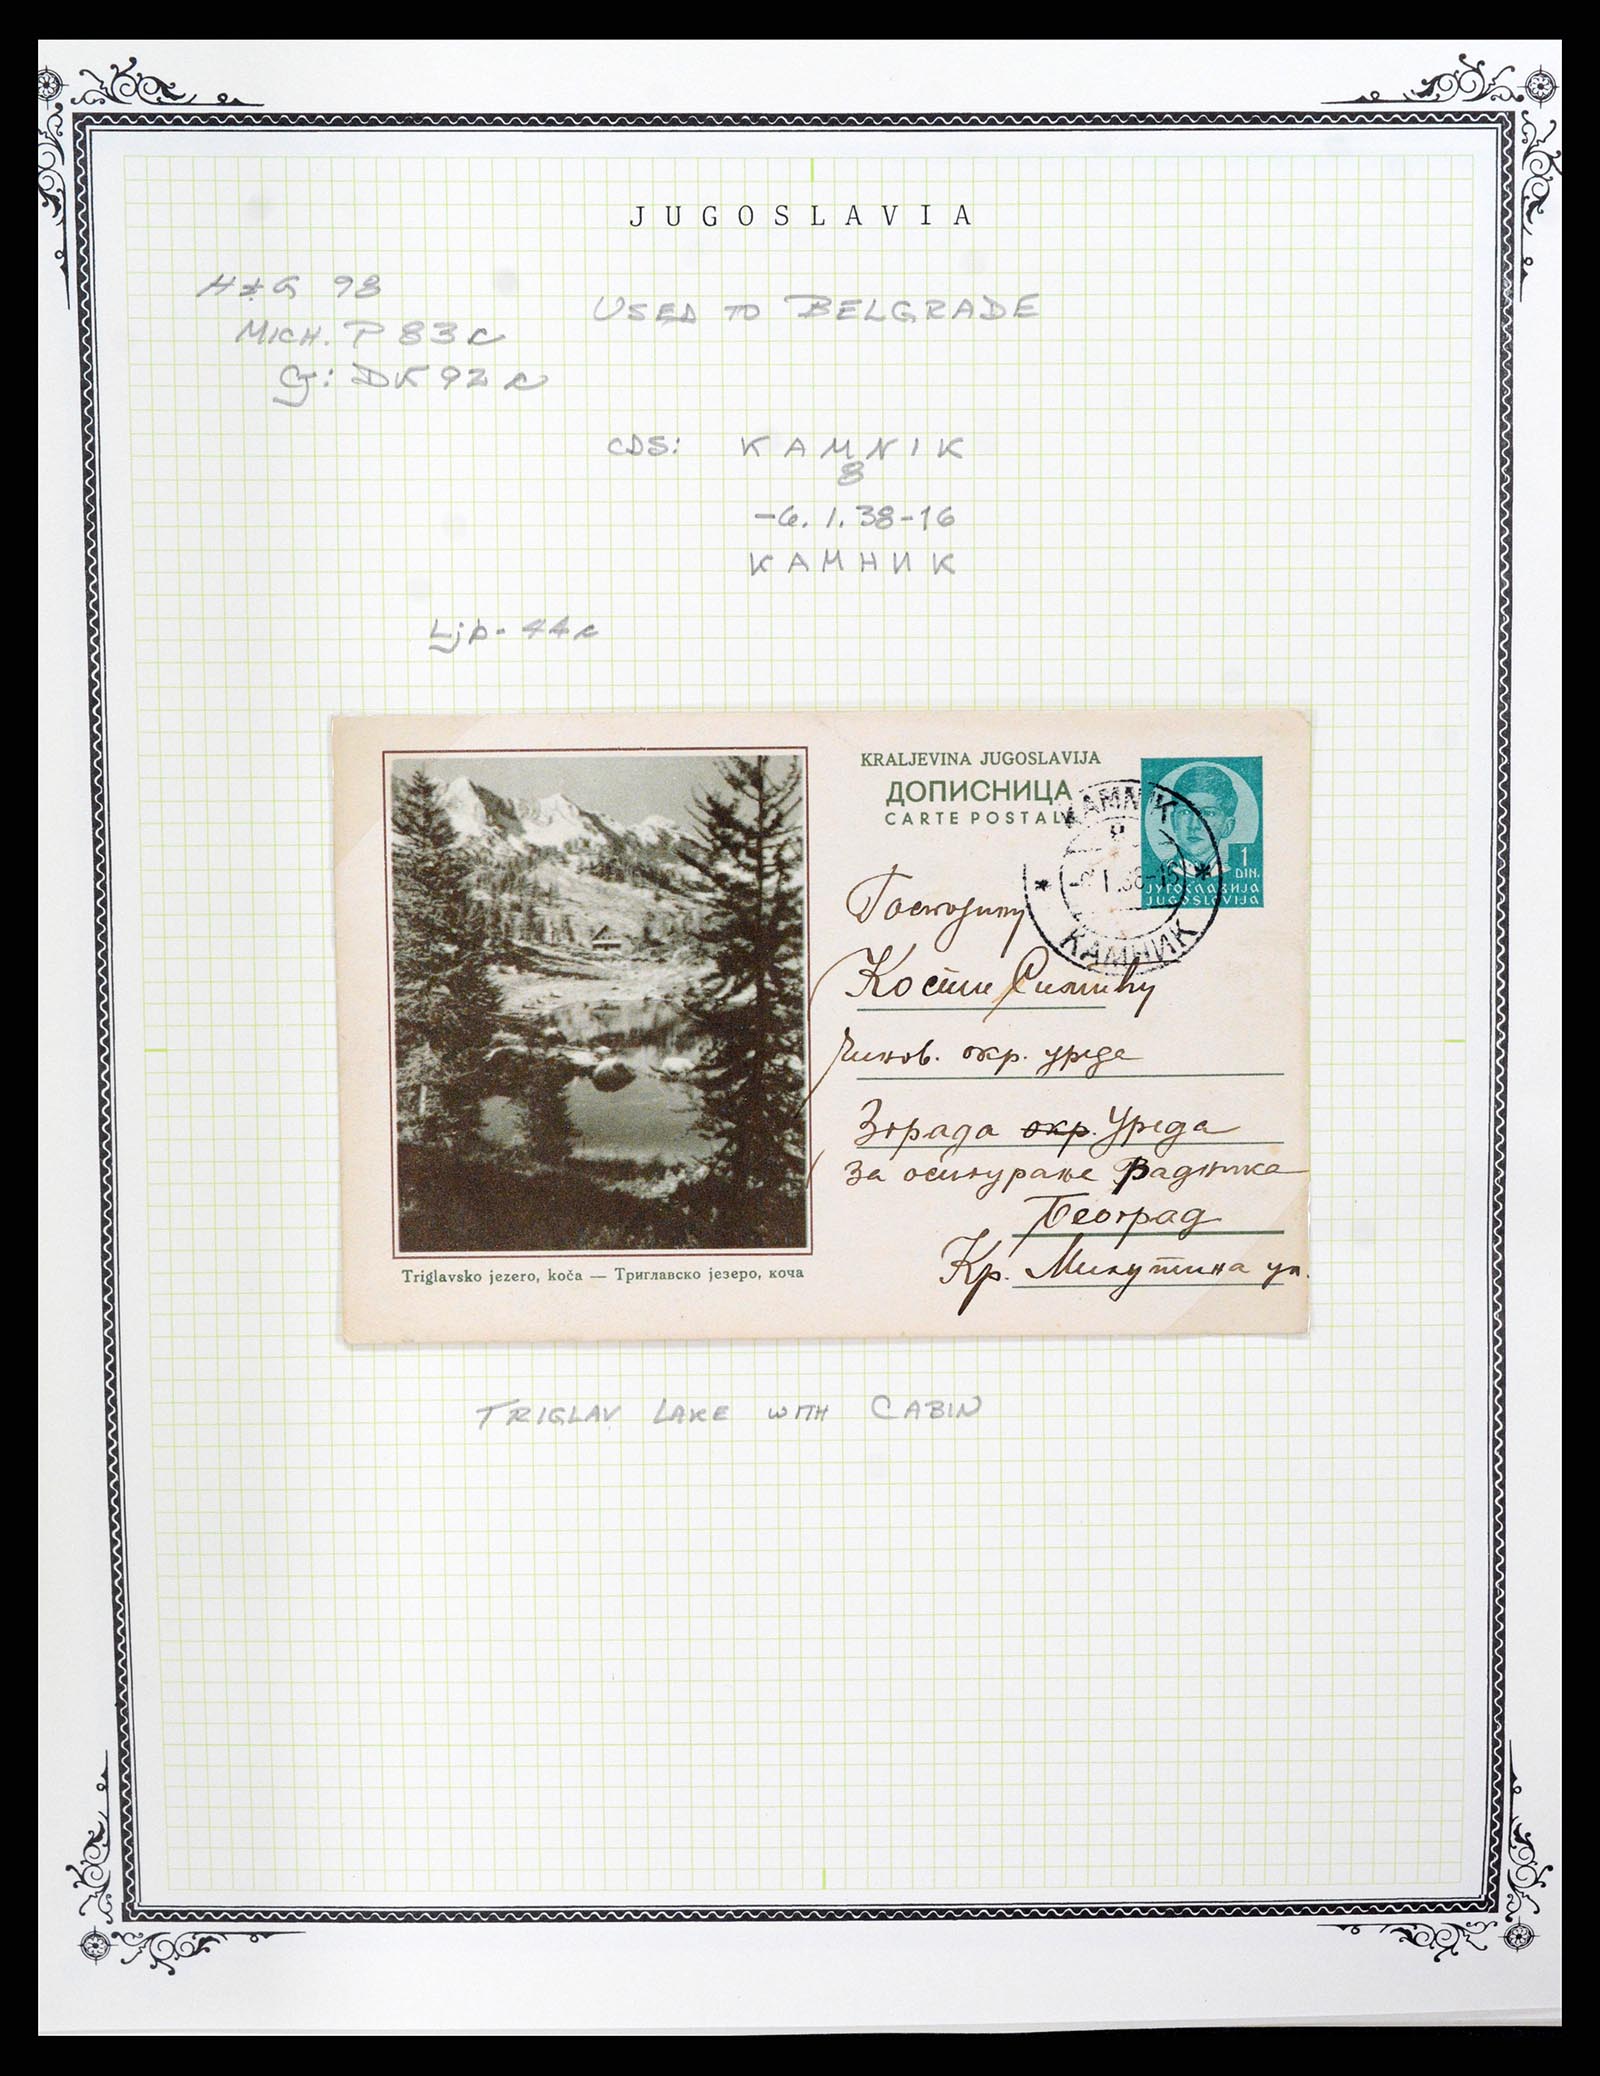 JUGOSLAVIA
H&G 98
USED TO BELGRADE
MICH. P 83c
Cj: DK 92 c
CDS: KAMNIK
8
-6.1.38-16
КАМНИК
Ljp - 44c
KRALJEVINA JUGOSLAVIJA
ДОПИСНИЦА
CARTE POSTALE
KAMNIK
1
DIN.
ЈУГОСЛАВИЈА
JUGOSLAVIJA
КАМНИК
Господину
Кости Симићу
Чинов. окр. уреда
Зграда окр. Уреда
за осигурање Радника
Београд
Кр. Милутина ул.
Triglavsko jezero, koča — Триглавско језеро, коча
TRIGLAV LAKE WITH CABIN